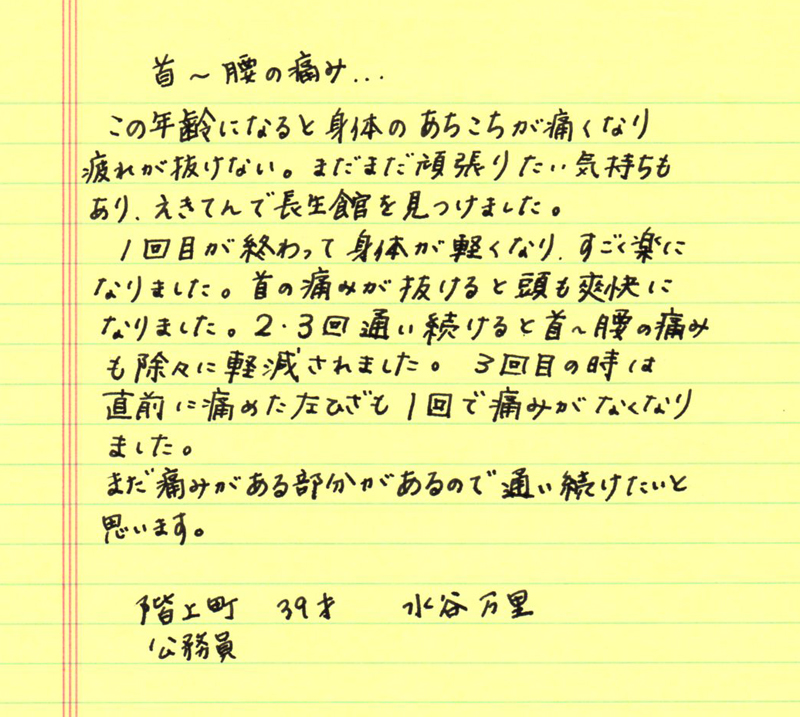 首～腰の痛み...
この年齢になると身体のあちこちが痛くなり
疲れが抜けない。まだまだ頑張りたい気持ちも
あり、えきてんで長生館を見つけました。
1回目が終わって身体が軽くなり、すごく楽に
なりました。首の痛みが抜けると頭も爽快に
なりました。2・3回通い続けると首～腰の痛み
も除々に軽減されました。3回目の時は
直前に痛めた左ひざも1回で痛みがなくなり
ました。
まだ痛みがある部分があるので通い続けたいと
思います。
階上町 39才 水谷万里
公務員